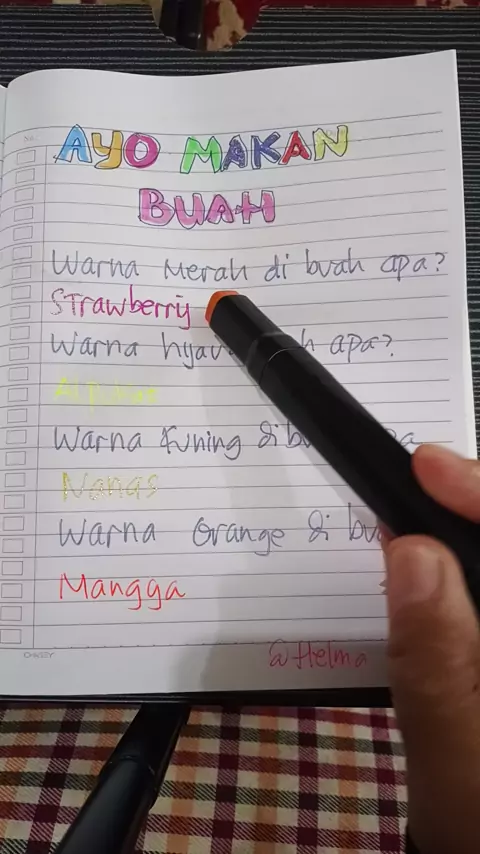 AYO MAKAN
BUAH
Warna Merah di buah apa?
Strawberry
Warna apa?
Alpukat
Warna Kuning di
Nanas
Warna Orange di
Mangga
@Helma